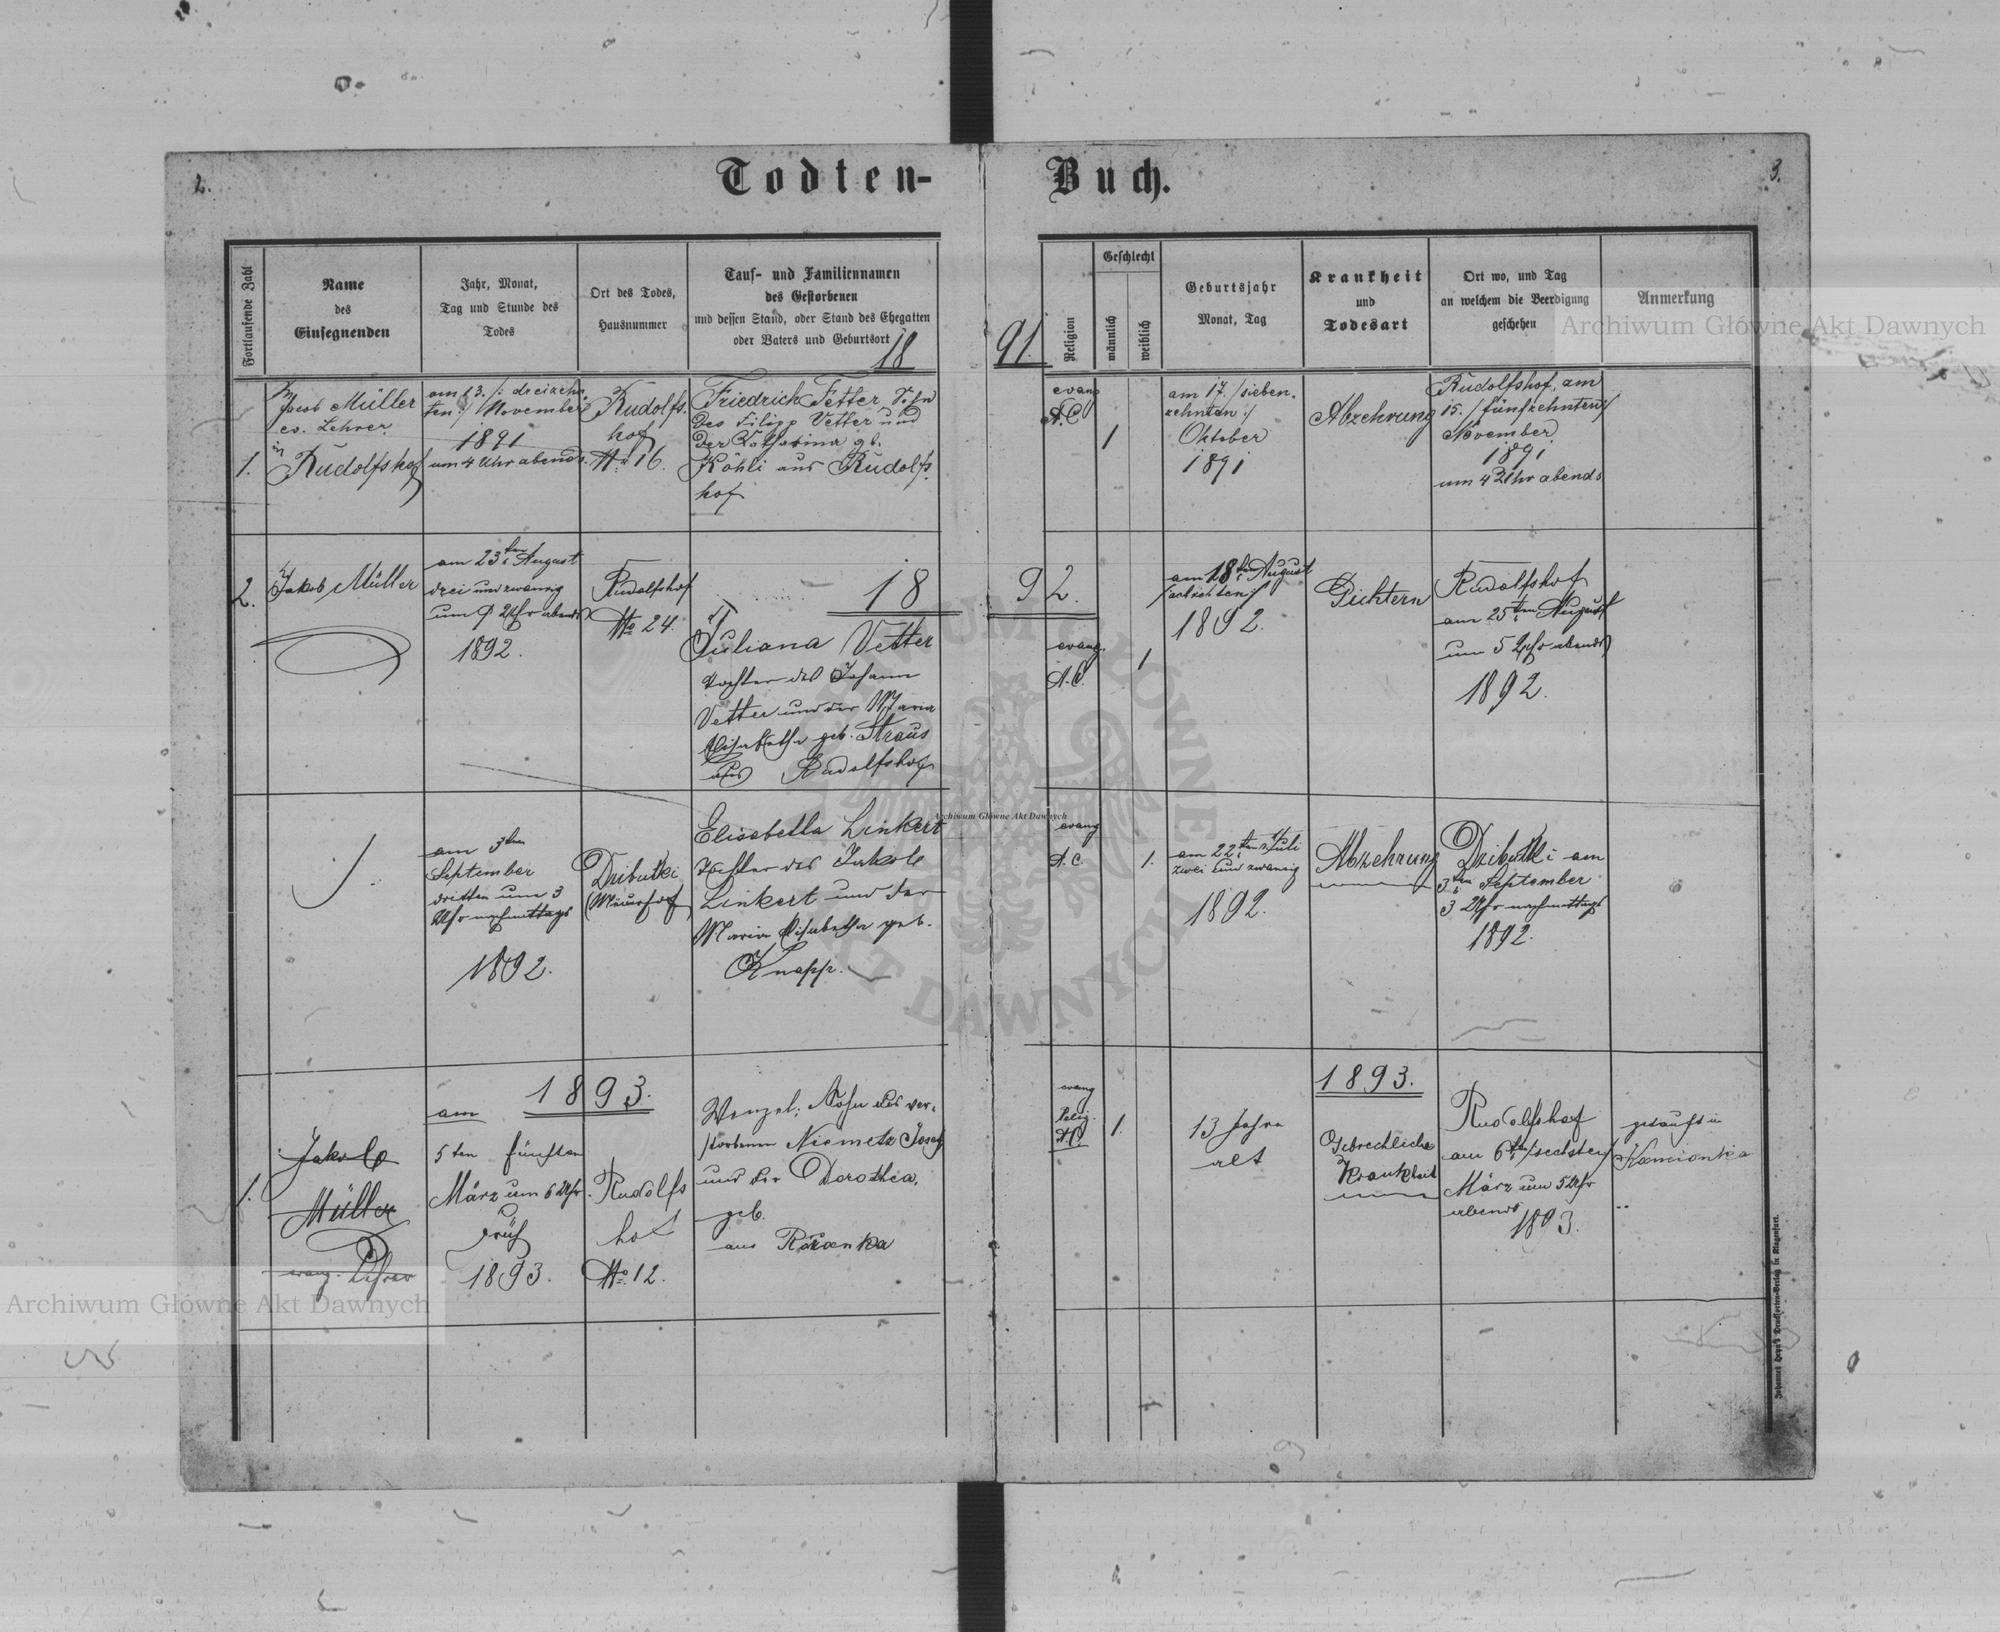 2.
Todten-
Buch.
3.
Fortlaufende Zahl
Name
des
Einsegnenden
Jahr, Monat,
Tag und Stunde des
Todes
Ort des Todes,
Hausnummer
Tauf- und Familiennamen
des Gestorbenen
und dessen Stand, oder Stand des Ehegatten
oder Vaters und Geburtsort
18
91.
Religion
Geschlecht
männlich
weiblich
Geburtsjahr
Monat, Tag
Krankheit
und
Todesart
Ort wo, und Tag
an welchem die Beerdigung
geschehen
Anmerkung
Archiwum Główne Akt Dawnych
1.
Jacob Müller
ev. Lehrer
in
Rudolfshof
am 13. /: dreizehn-
ten :/ November
1891
um 4 Uhr abends.
Rudolfs-
hof
No 16.
Friedrich Fetter Sohn
des Filipp Vetter und
der Katharina gb.
Köhli aus Rudolfs-
hof
evang
A.C.
1
am 17. /sieben-
zehnten :/
Oktober
1891
Abzehrung
Rudolfshof, am
15. / fünfzehnten :/
November
1891
um 4 Uhr abends
2.
Jakob Müller
am 23ten August
drei und zwanzig
um 9 Uhr abends
1892.
Rudolfshof
No 24.
18
92.
Juliana Vetter
Tochter des Johann
Vetter und der Maria
Elisabetha geb. Straus
aus Rudolfshof
evang.
A.C.
1
am 18ten August
/achzehten/
1892.
Gichtern
Rudolfshof
am 25ten August
um 5 Uhr abends
1892.
am 3ten
September
dritten um 3
Uhr nachmittags
1892.
Dzibutki
(Meierhof)
Elisabetha Linkert
Tochter des Jakob
Linkert und der
Maria Elisabetha geb.
Knapp.
Archiwum Główne Akt Dawnych
evang
A.C.
1.
am 22ten Juli
zwei und zwanzig
1892.
Abzehrung
Dzibutki am
3ten September
3 Uhr nachmittags
1892.
1893.
1.
Jakob
Müller
evang. Lehrer
am
5ten fünften
März um 6 Uhr
früh
1893.
Rudolfs
hof
No. 12.
Wenzel, Sohn des ver-
storbenen Niemetz Josef
und der Dorothea,
geb.
aus
evang
Relig.
A.C.
1.
13 Jahre
alt
1893.
Gebrechliche
Krankheit
Rudolfshof
am 6ten /sechsten/
März um 5 Uhr
abends
1893.
getauft in
Kamionka
Archiwum Główne Akt Dawnych
ARCHIWUM GŁÓWNE
AKT DAWNYCH
Johannes Heyn's Drucksorten-Verlag in Klagenfurt.